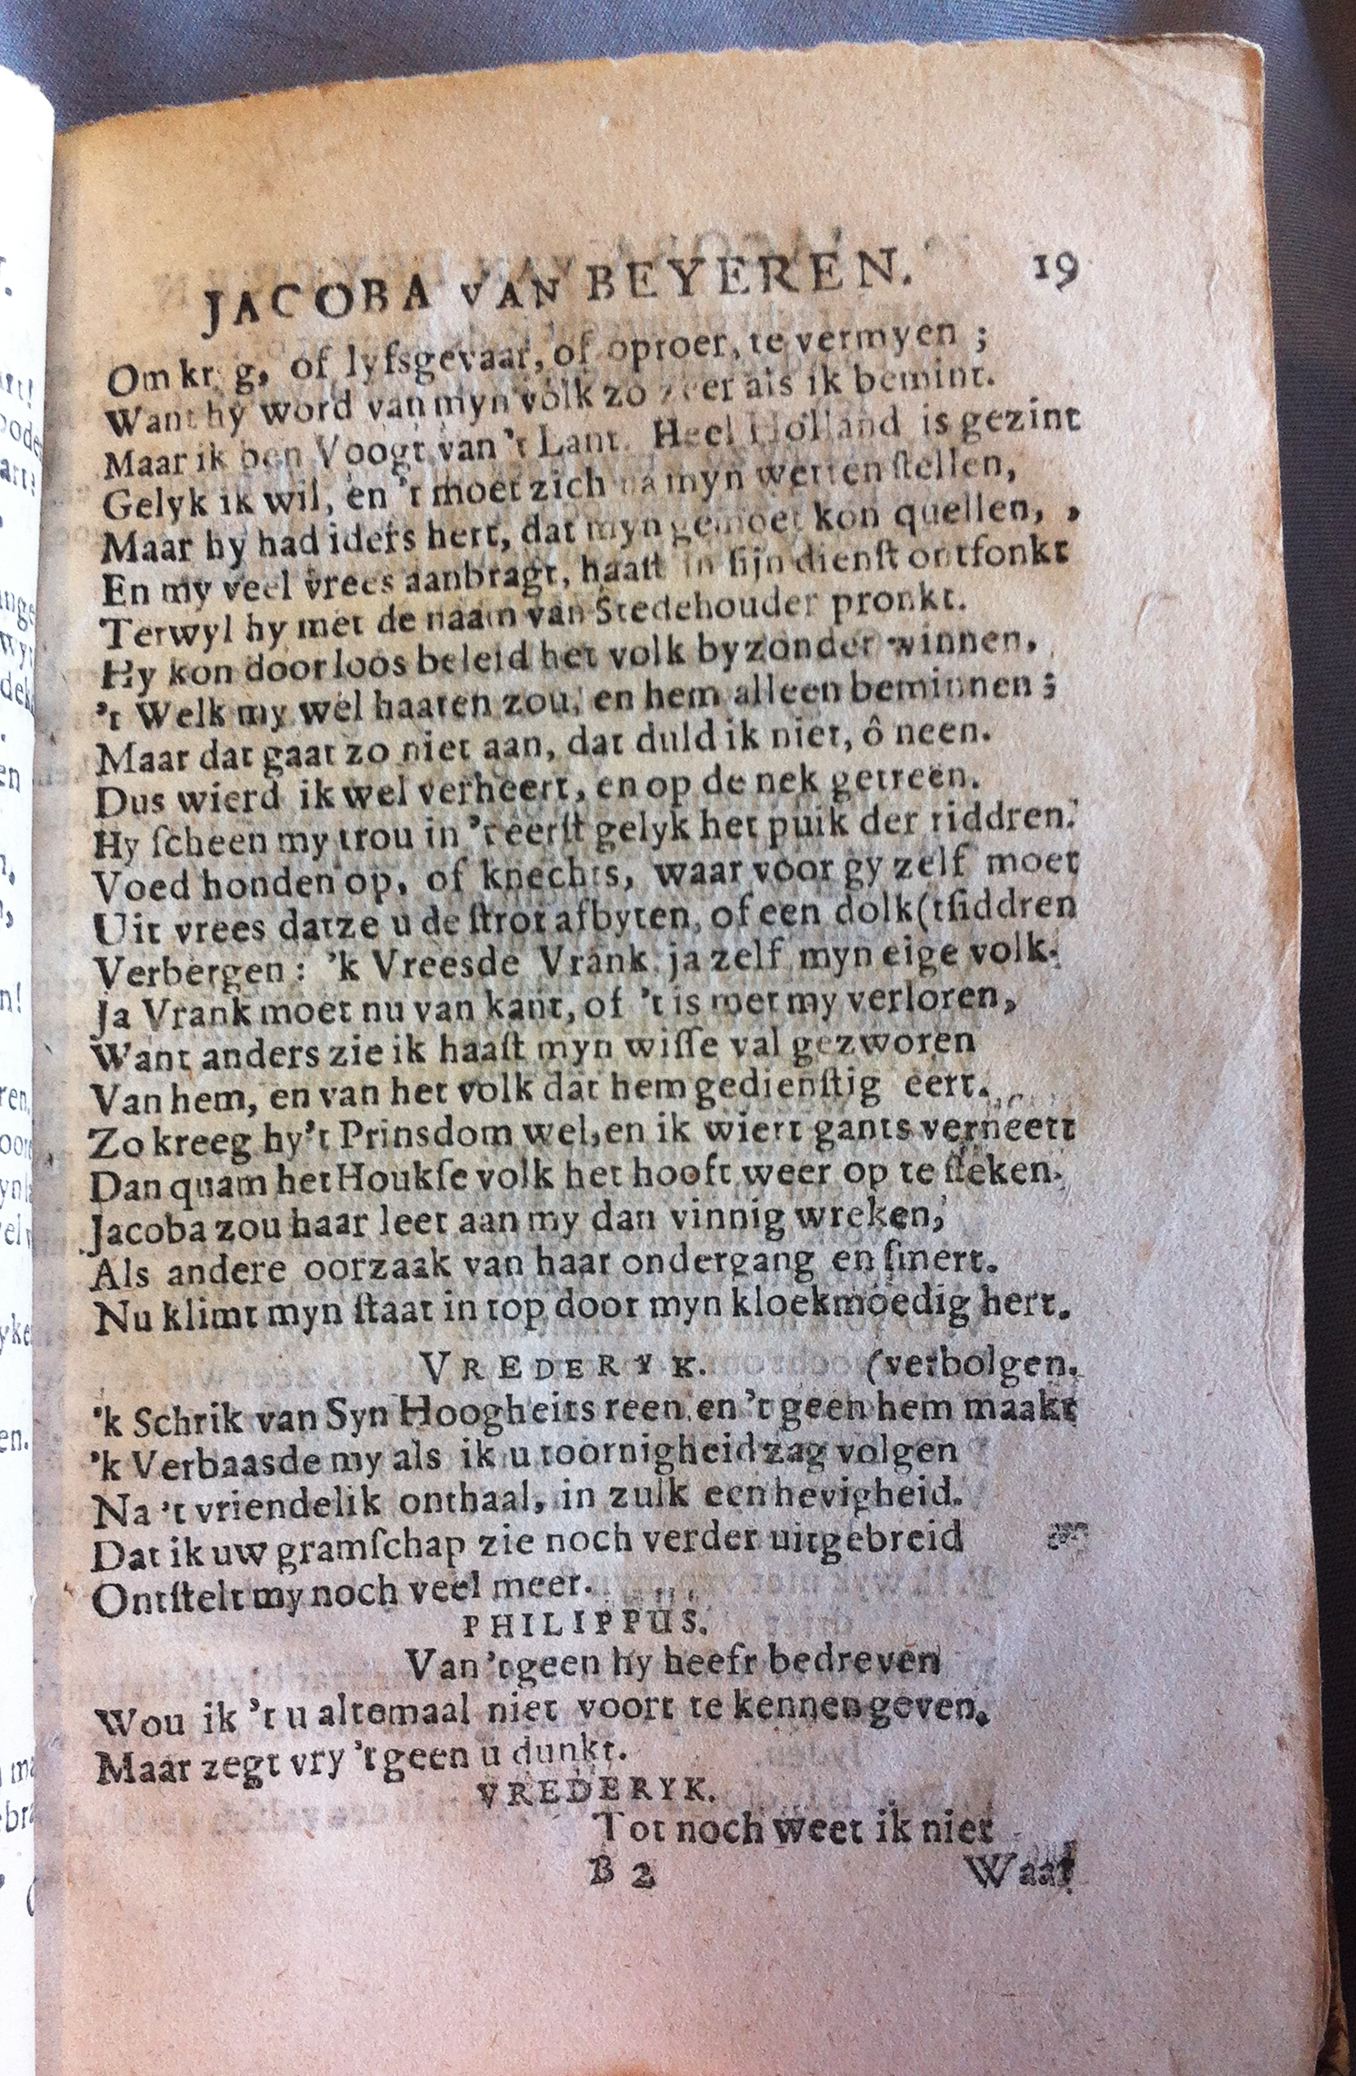 JACOBA VAN BEYEREN. 19
Om kr g, of lyfsgevaar, of oproer, te vermyen ;
Want hy word van myn volk zo zeer als ik bemint.
Maar ik ben Voogt van 't Lant. Heel Holland is gezint
Gelyk ik wil, en 't moet zich na myn wetten ſtellen,
Maar hy had iders hert, dat myn gemoet kon quellen,
En my veel vrees aanbragt, haaſt in ſijn dienſt ontfonkt
Terwyl hy met de naam van Stedehouder pronkt.
Hy kon door loos beleid het volk byzonder winnen,
't Welk my wel haaten zou, en hem alleen beminnen ;
Maar dat gaat zo niet aan, dat duld ik niet, ô neen.
Dus wierd ik wel verheert, en op de nek getreen.
Hy ſcheen my trou in 't eerſt gelyk het puik der riddren.
Voed honden op, of knechts, waar voor gy zelf moet
Uit vrees datze u de ſtrot afbyten, of een dolk (tſiddren
Verbergen: 'k Vreesde Vrank ja zelf myn eige volk.
Ja Vrank moet nu van kant, of 't is met my verloren,
Want anders zie ik haaſt myn wiſſe val gezworen
Van hem, en van het volk dat hem gedienſtig eert.
Zo kreeg hy't Prinsdom wel, en ik wiert gants verneert
Dan quam het Houkſe volk het hooft weer op te ſteken.
Jacoba zou haar leet aan my dan vinnig wreken,
Als andere oorzaak van haar ondergang en ſmert.
Nu klimt myn ſtaat in top door myn kloekmoedig hert.
VREDERYK. (verbolgen.
'k Schrik van Syn Hoogheits reen en 't geen hem maakt
'k Verbaasde my als ik u toornigheid zag volgen
Na 't vriendelik onthaal, in zulk een hevigheid.
Dat ik uw gramſchap zie noch verder uitgebreid
Ontſtelt my noch veel meer.
PHILIPPUS.
Van 't geen hy heeft bedreven
Wou ik 't u altemaal niet voort te kennen geven.
Maar zegt vry 't geen u dunkt.
VREDERYK.
Tot noch weet ik niet
B 2 Waar